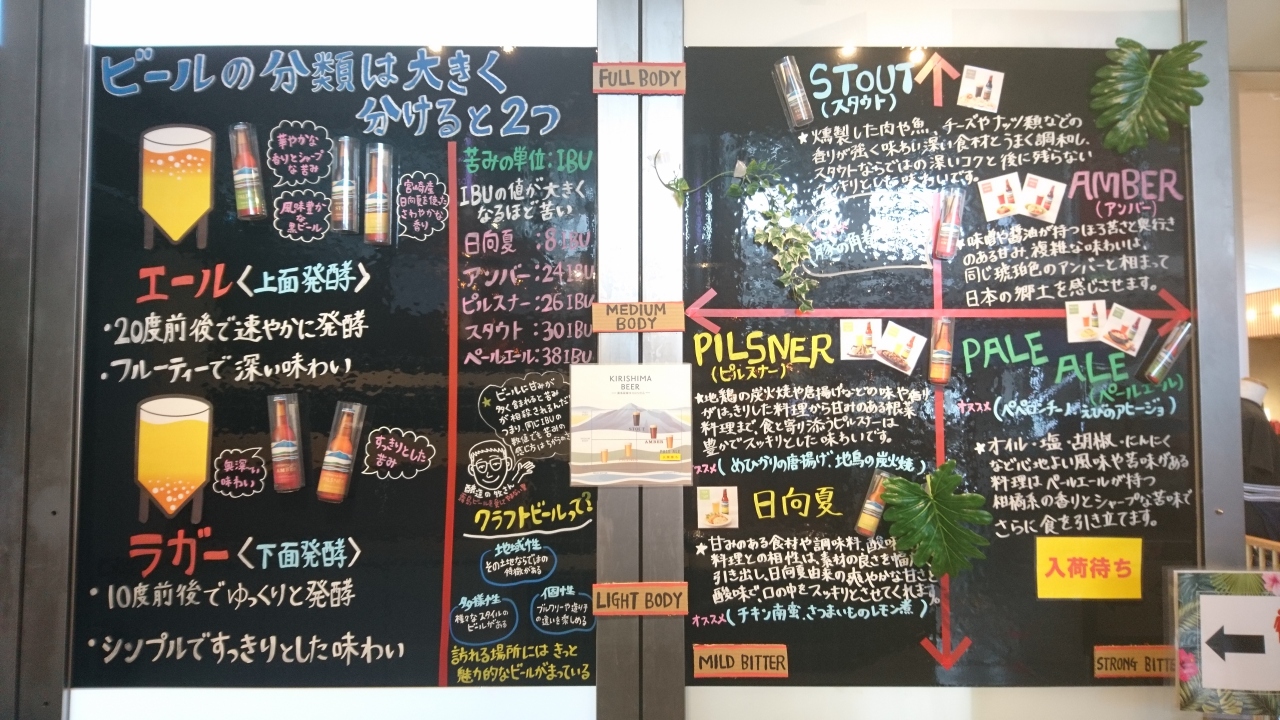 ビールの分類は大きく
分けると2つ
華やかな
香りとシャープ
な苦み
風味豊か
な
黒ビール
宮崎産
日向夏を使った
さわやかな
香り
エール〈上面発酵〉
・20度前後で速やかに発酵
・フルーティーで深い味わい
奥深い
味わい
すっきりとした
苦み
ラガー〈下面発酵〉
・10度前後でゆっくりと発酵
・シンプルですっきりとした味わい
苦みの単位:IBU
IBUの値が大きく
なるほど苦い
日向夏:8IBU
アンバー:24IBU
ピルスナー:26IBU
スタウト:30IBU
ペールエール:38IBU
ビールに甘みが
多く含まれると苦み
が相殺されるんだ
つまり、同じIBUの
数値でも苦みの
醸造の牧さん
クラフトビールって?
地域性
その土地ならではの
特徴がある
多様性
様々なスタイルの
ビールがある
個性
ブルワリーや造り手
の違いを楽しめる
訪れる場所にはきっと
魅力的なビールがまっている
FULL BODY
MEDIUM
BODY
KIRISHIMA
BEER
LIGHT BODY
STOUT
(スタウト)
★燻製した肉や魚、チーズやナッツ類などの
香りが強く味わい深い食材とうまく調和し、
スタウトならではの深いコクと後に残らない
味わいです。
AMBER
(アンバー)
★味噌や醤油が持つほろ苦さと奥行き
のある甘み、複雑な味わいは、
同じ琥珀色のアンバーと相まって
日本の郷土を感じさせます。
PILSNER
(ピルスナー)
★地鶏の炭火焼や唐揚げなどの味や香り
がはっきりした料理から甘みのある根菜
料理まで、食と寄り添うピルスナーは
豊かでスッキリとした味わいです。
スメ(めひかりの唐揚げ、地鳥の炭火焼)
PALE
ALE
(ペールエール)
オススメ(ペペロンチーノ、えびのアヒージョ)
★オイル・塩・胡椒・にんにく
など心地よい風味や苦味がある
料理はペールエールが持つ
柑橘系の香りとシャープな苦味で
さらに食を引き立てます。
入荷待ち
日向夏
★甘みのある食材や調味料、酸味
料理との相性は、素材の良さを幅
引き出し、日向夏由来の爽やかな甘さと
酸味で、口の中をスッキリとさせてくれます。
オススメ(チキン南蛮、さつまいものレモン煮)
MILD BITTER
STRONG BITTE